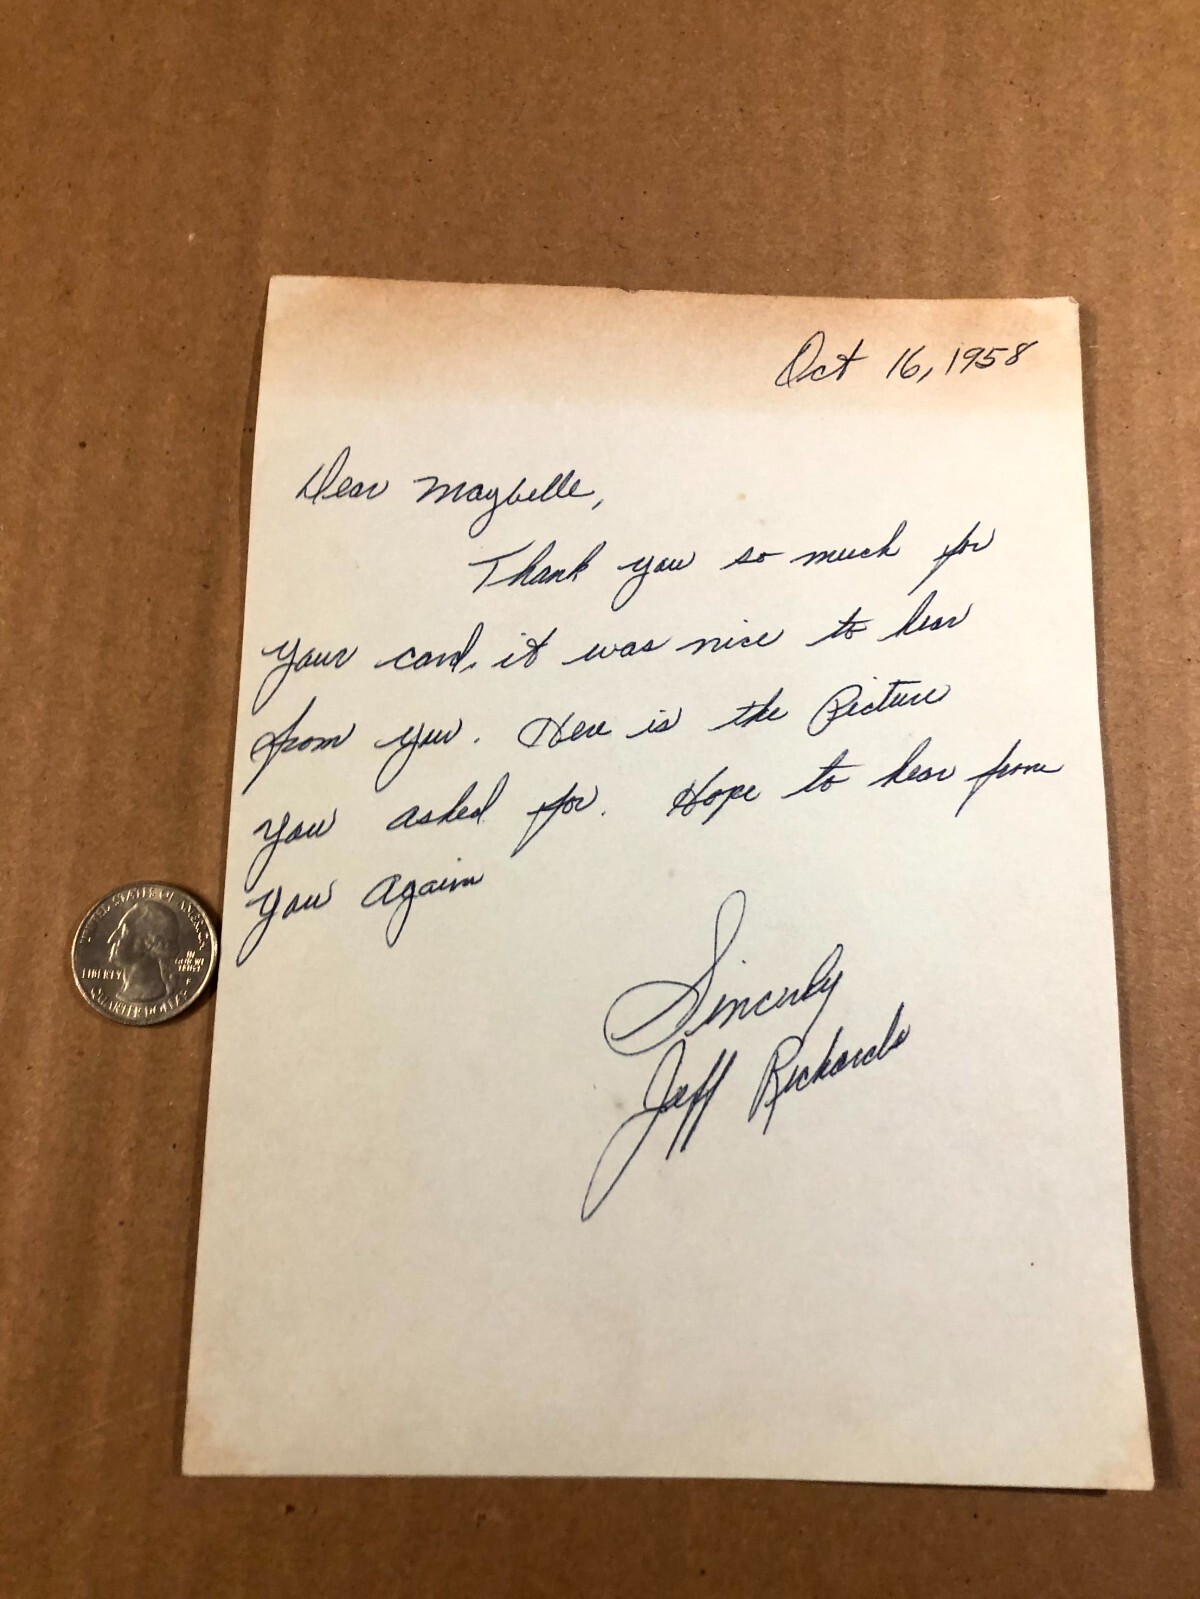 Oct 16, 1958
Dear Maybelle,
Thank you so much for
your card, it was nice to hear
from you. Here is the Picture
you asked for. Hope to hear from
you again
Sincerly
Jeff Richards
UNITED STATES OF AMERICA
LIBERTY
IN
GOD WE
TRUST
QUARTER DOLLAR